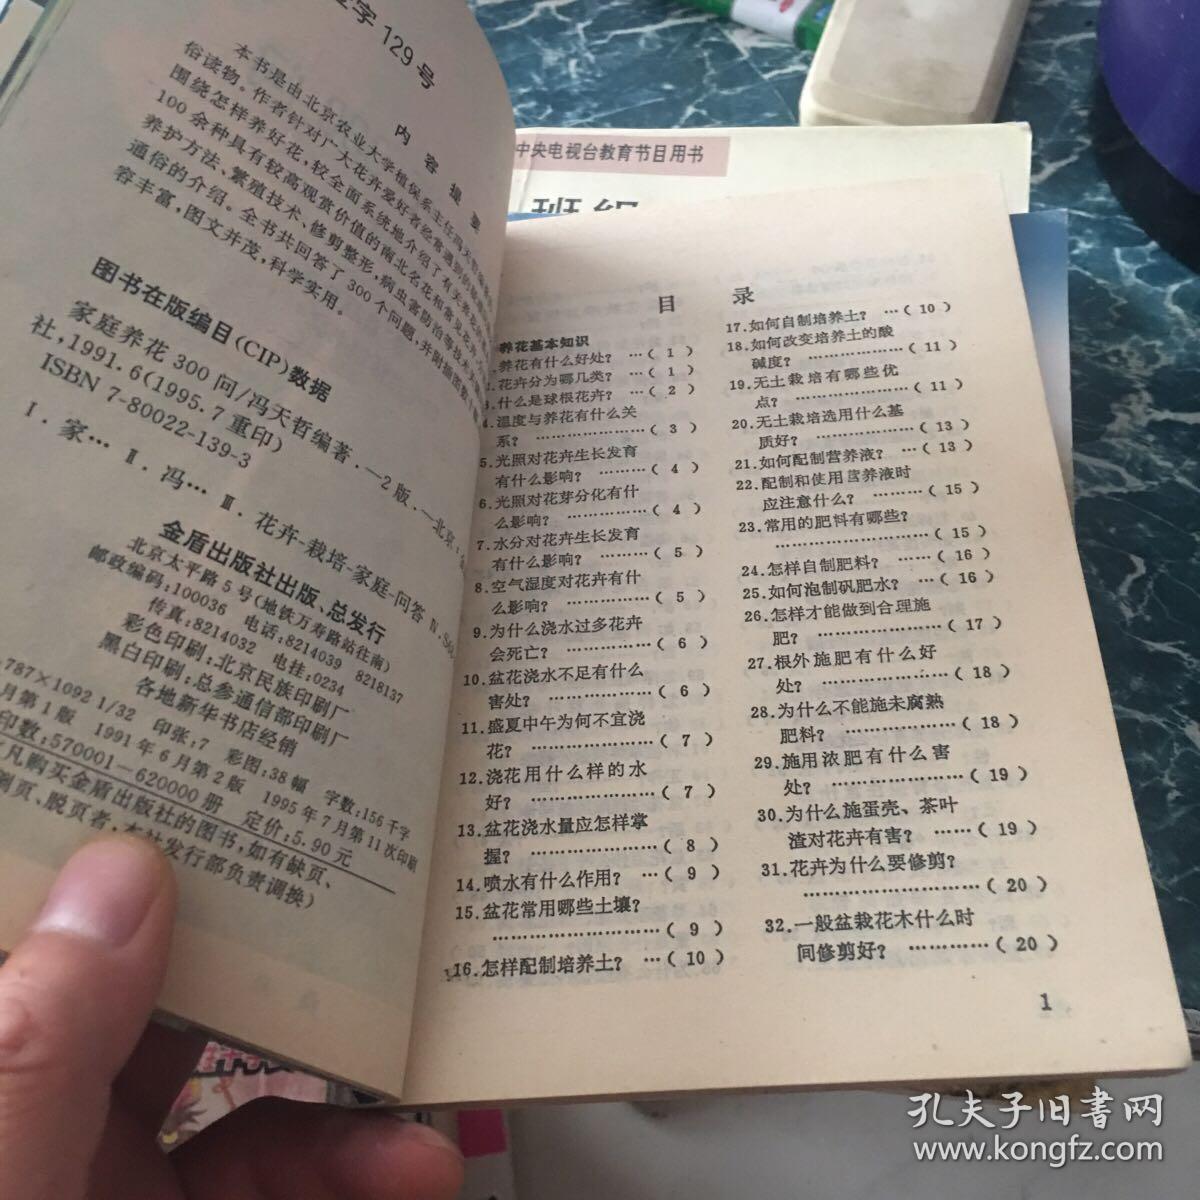 字129号
内容提要
本书是由北京农业大学植保系主任冯天哲编著的
俗读物。作者针对广大花卉爱好者经常遇到的
围绕怎样养好花,较全面系统地介绍了有关养花的
100余种具有较高观赏价值的南北名花和常见花卉
养护方法、繁殖技术、修剪整形,病虫害防治等技术
通俗的介绍。全书共回答了300个问题,并附插图
容丰富,图文并茂,科学实用。
图书在版编目(CIP)数据
家庭养花300问/冯天哲编著.—2版.—北京:金
社,1991.6(1995.7重印)
ISBN 7-80022-139-3
Ⅰ.家… Ⅱ.冯… Ⅲ.花卉-栽培-家庭-问答 Ⅳ.S6
金盾出版社出版、总发行
北京太平路5号(地铁万寿路站往南)
邮政编码:100036 电话:8214039 8218137
传真:8214032 电挂:0234
彩色印刷:北京民族印刷厂
黑白印刷:总参通信部印刷厂
各地新华书店经销
787×1092 1/32 印张:7 彩图:38幅 字数:156千字
月第1版 1991年6月第2版 1995年7月第11次印刷
印数:570001—620000册 定价:5.90元
凡购买金盾出版社的图书,如有缺页、
页、脱页者,本社发行部负责调换)
中央电视台教育节目用书
班组
目 录
养花基本知识
养花有什么好处? …( 1 )
.花卉分为哪几类? …( 1 )
.什么是球根花卉? …( 2 )
4.温度与养花有什么关
系? ………………( 3 )
5.光照对花卉生长发育
有什么影响? ………( 4 )
6.光照对花芽分化有什
么影响? ……………( 4 )
7.水分对花卉生长发育
有什么影响? ………( 5 )
8.空气湿度对花卉有什
么影响? ……………( 5 )
9.为什么浇水过多花卉
会死亡? ……………( 6 )
10.盆花浇水不足有什么
害处? ………………( 6 )
11.盛夏中午为何不宜浇
花? …………………( 7 )
12.浇花用什么样的水
好? …………………( 7 )
13.盆花浇水量应怎样掌
握? …………………( 8 )
14.喷水有什么作用? …( 9 )
15.盆花常用哪些土壤?
………………………( 9 )
16.怎样配制培养土? …(10 )
17.如何自制培养土? …( 10 )
18.如何改变培养土的酸
碱度? ………………( 11 )
19.无土栽培有哪些优
点? …………………( 11 )
20.无土栽培选用什么基
质好? ………………( 13 )
21.如何配制营养液? …( 13 )
22.配制和使用营养液时
应注意什么? ………( 15 )
23.常用的肥料有哪些?
………………………( 15 )
24.怎样自制肥料? ……( 16 )
25.如何泡制矾肥水? …( 16 )
26.怎样才能做到合理施
肥? …………………( 17 )
27.根外施肥有什么好
处? …………………( 18 )
28.为什么不能施未腐熟
肥料? ………………( 18 )
29.施用浓肥有什么害
处? …………………( 19 )
30.为什么施蛋壳、茶叶
渣对花卉有害? ……( 19 )
31.花卉为什么要修剪?
………………………( 20 )
32.一般盆栽花木什么时
间修剪好? …………( 20 )
1
孔夫子旧书网
www.kongfz.com